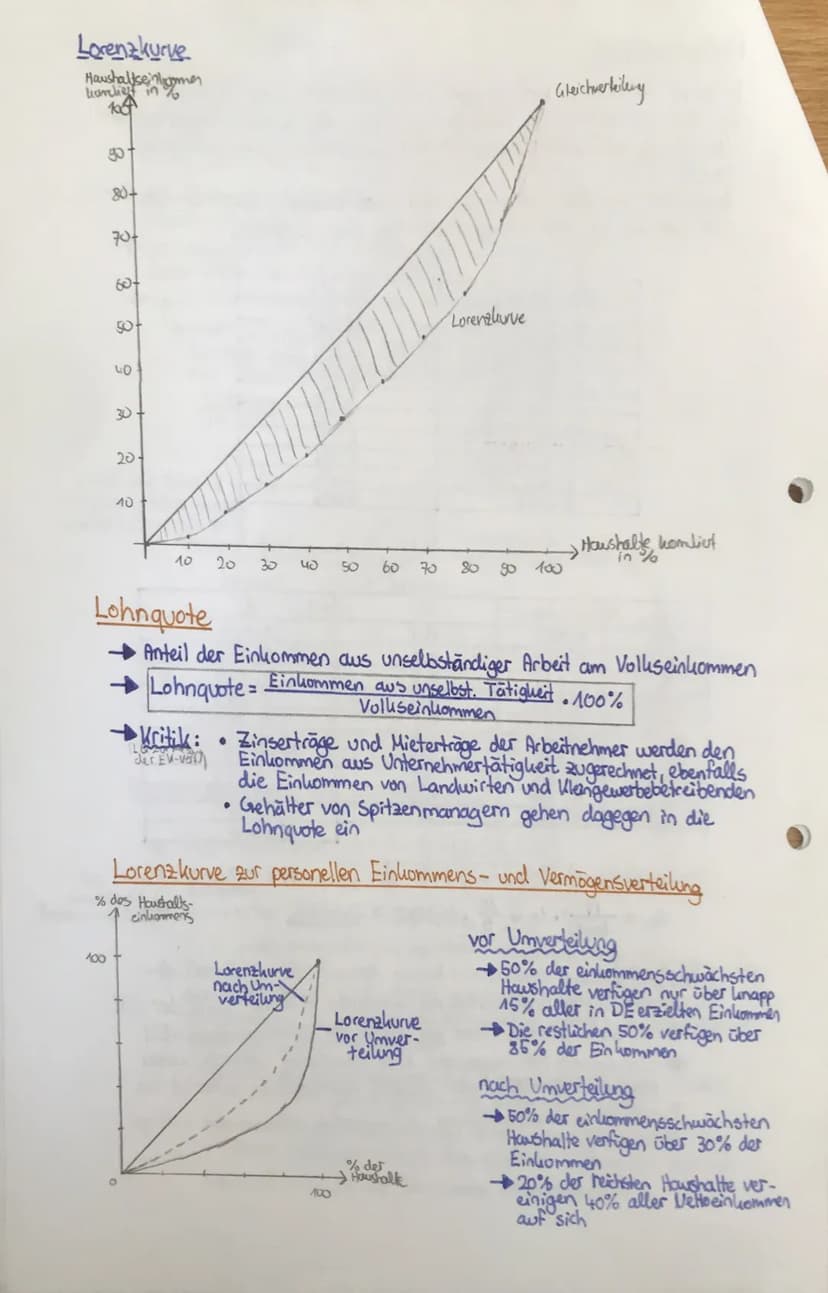 Lorenzkurve
Haushaltseinkommen
kumliert in %
100
90
80
70
60
50
40
30
20
10
Gleichverteilung
Lorenzkurve
10 20 30 40 50 60 70 80 90 100
Haushalte kumliert
in %
Lohnquote
→ Anteil der Einkommen aus unselbständiger Arbeit am Volkseinkommen
→ Lohnquote = Einkommen aus unselbst. Tätigkeit · 100%
Volkseinkommen
→ Kritik: • Zinserträge und Mieterträge der Arbeitnehmer werden den
Einkommen aus Unternehmertätigkeit zugerechnet, ebenfalls
die Einkommen von Landwirten und Kleingewerbebetreibenden
• Gehälter von Spitzenmanagern gehen dagegen in die
Lohnquote ein
Lorenzkurve zur personellen Einkommens- und Vermögensverteilung
% des Haushalts-
einkommens
100
Lorenzkurve
nach Um-
verteilung
Lorenzkurve
vor Umver-
teilung
0
100
% der
Haushalte
vor Umverteilung
→ 50% der einkommensschwächsten
Haushalte verfügen nur über knapp
15% aller in DE erzielten Einkommen
→ Die restlichen 50% verfügen über
85% der Einkommen
nach Umverteilung
→ 50% der einkommensschwächsten
Haushalte verfügen über 30% der
Einkommen
→ 20% der reichsten Haushalte ver-
einigen 40% aller Nettoeinkommen
auf sich